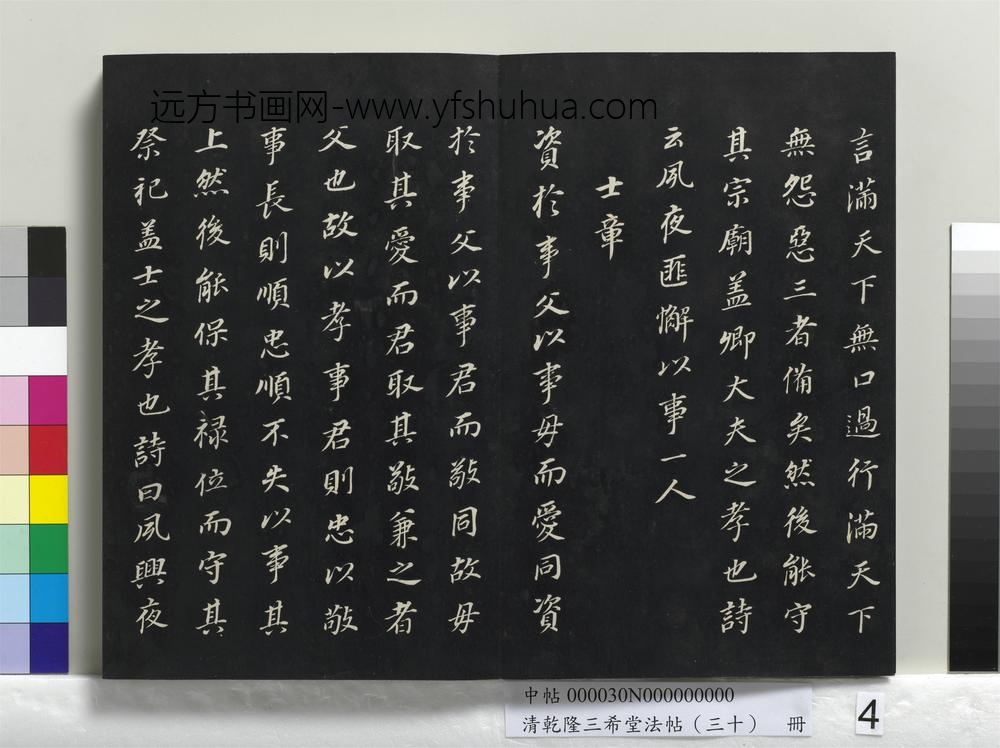 远方书画网-www.yfshuhua.com
言滿天下無口過行滿天下
無怨惡三者備矣然後能守
其宗廟盖卿大夫之孝也詩
云夙夜匪懈以事一人
士章
資於事父以事母而愛同資
於事父以事君而敬同故母
取其愛而君取其敬兼之者
父也故以孝事君則忠以敬
事長則順忠順不失以事其
上然後能保其禄位而守其
祭祀盖士之孝也詩曰夙興夜
中帖 000030N000000000
清乾隆三希堂法帖（三十） 冊
4